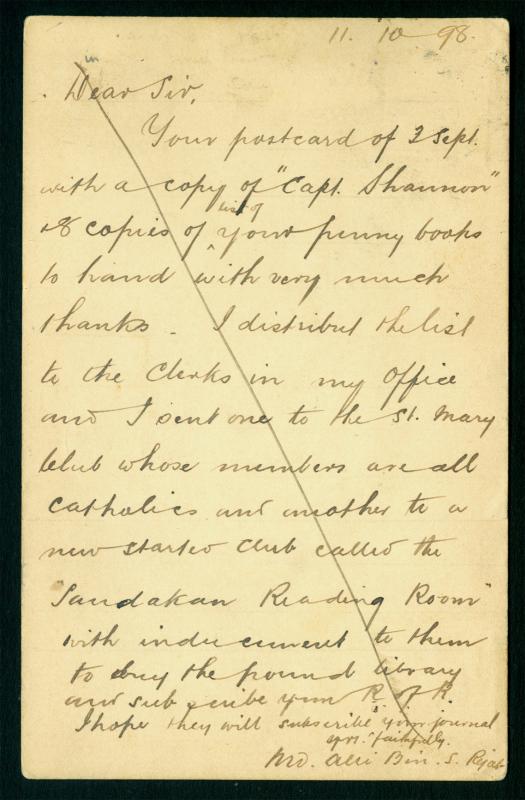 11. 10 98.
in
Dear Sir,
Your postcard of 3 Sept.
with a copy of "Capt. Shannon"
& 8 copies of list of your penny books
to hand with very much
thanks. I distribut the list
to the Clerks in my office
and I sent one to the St. Mary
Club whose members are all
Catholics and another to a
new started Club called the
"Sandakan Reading Room"
with inducement to them
to buy the pound library
and subscribe your R. of R.
I hope they will subscribe your journal
yrs. faithfully.
Md. Alli Bin. S.